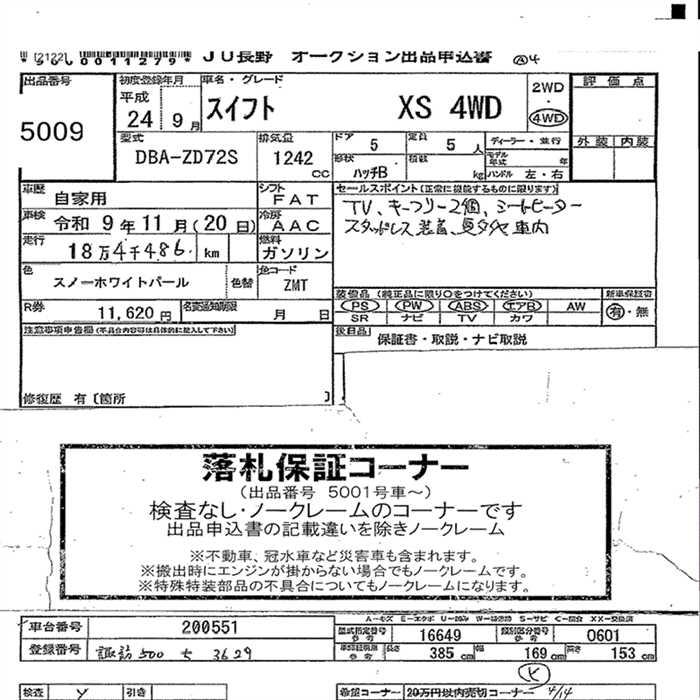 *260011279*
JU長野 オークション出品申込書 Ⓐ4
出品番号 5009
初度登録年月 平成 24 9月
車名・グレード スイフト XS 4WD
2WD・4WD
評価点
外装 内装
型式 DBA-ZD72S
排気量 1242 CC
ドア 5
定員 5人
形状 ハッチB
積数 kg
ディーラー・並行
モデル年式 年
ハンドル 左・右
車歴 自家用
シフト FAT
車検 令和 9年11月(20日)
冷房 AAC
走行 18万4千486 km
燃料 ガソリン
色 スノーホワイトパール
色替
色コード ZMT
R券 11,620円
名変通知期限 月 日
セールスポイント(正常に機能するものに限ります)
TV、キーフリー2個、シートヒーター
スタッドレス装着、夏タイヤ車内
装備品(純正品に限り○をつけてください)
PS PW ABS エアB AW
SR ナビ TV カワ
新車保証書
有・無
後日品
保証書・取説・ナビ取説
注意事項申告欄(不具合内容等は具体的に記入して下さい)
修復歴 有〔箇所 〕
落札保証コーナー
(出品番号 5001号車~)
検査なし・ノークレームのコーナーです
出品申込書の記載違いを除きノークレーム
※不動車、冠水車など災害車も含まれます。
※搬出時にエンジンが掛からない場合でもノークレームです。
※特殊特装部品の不具合についてもノークレームになります。
車台番号 200551
登録番号 諏訪 500 ち 3629
型式指定番号 参考 16649
類別区分番号 参考 0601
参考 長さ 385cm 幅 169cm 高さ 153cm
検査 Y
引き
希望コーナー 20万円以内売切コーナー 4/14